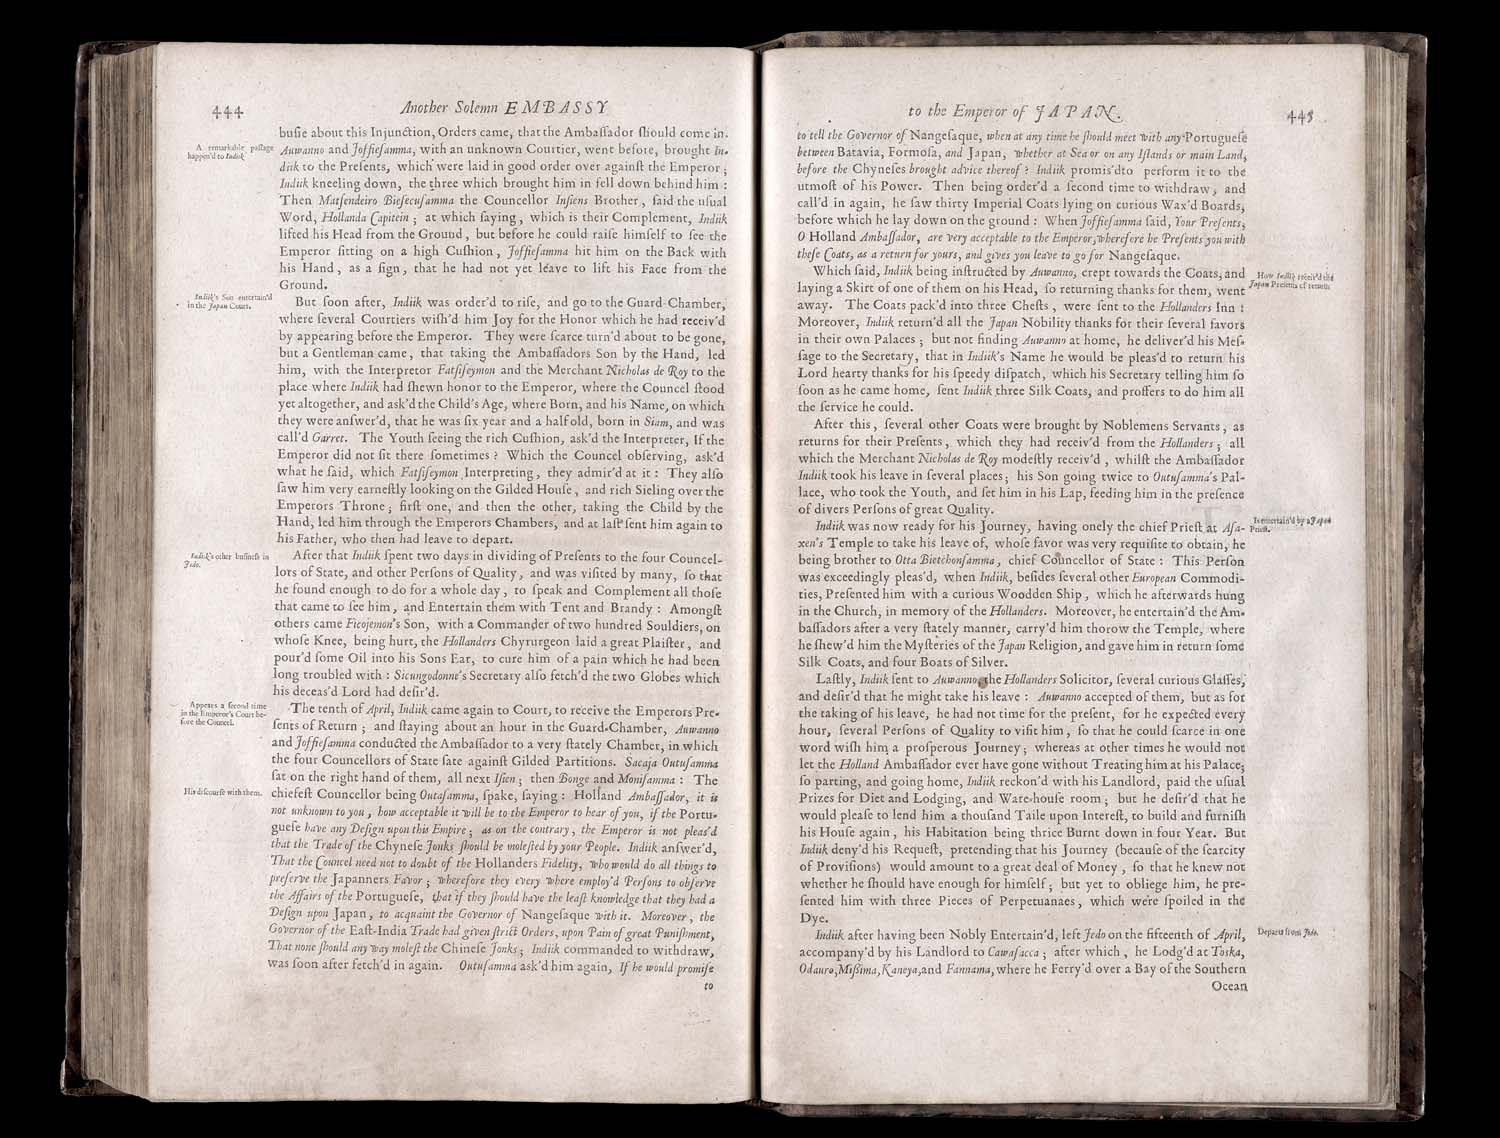 444
Another Solemn EMBASSY
buſie about this Injunction, Orders came, that the Ambaſſador ſhould come in.
A remarkable paſſage
happen'd to Indiik
Auwanno and Joſſieſamma, with an unknown Courtier, went before, brought In-
diik to the Preſents, which were laid in good order over againſt the Emperor;
Indiik kneeling down, the three which brought him in fell down behind him:
Then Matſendeiro Bieſecuſamma the Councellor Inſiens Brother, ſaid the uſual
Word, Hollanda Capitein; at which ſaying, which is their Complement, Indiik
lifted his Head from the Ground, but before he could raiſe himſelf to ſee the
Emperor ſitting on a high Cuſhion, Joſſieſamma hit him on the Back with
his Hand, as a ſign, that he had not yet leave to lift his Face from the
Ground.
Indiik's Son entertain'd
in the Japan Court.
But ſoon after, Indiik was order'd to riſe, and go to the Guard-Chamber,
where ſeveral Courtiers wiſh'd him Joy for the Honor which he had receiv'd
by appearing before the Emperor. They were ſcarce turn'd about to be gone,
but a Gentleman came, that taking the Ambaſſadors Son by the Hand, led
him, with the Interpretor Fatſiſeymon and the Merchant Nicholas de Roy to the
place where Indiik had ſhewn honor to the Emperor, where the Councel ſtood
yet altogether, and ask'd the Child's Age, where Born, and his Name, on which
they were anſwer'd, that he was ſix year and a half old, born in Siam, and was
call'd Garret. The Youth ſeeing the rich Cuſhion, ask'd the Interpreter, If the
Emperor did not ſit there ſometimes? Which the Councel obſerving, ask'd
what he ſaid, which Fatſiſeymon Interpreting, they admir'd at it: They alſo
ſaw him very earneſtly looking on the Gilded Houſe, and rich Sieling over the
Emperors Throne; firſt one, and then the other, taking the Child by the
Hand, led him through the Emperors Chambers, and at laſt ſent him again to
his Father, who then had leave to depart.
Indiik's other buſineſs in
Jedo.
After that Indiik ſpent two days in dividing of Preſents to the four Councel-
lors of State, and other Perſons of Quality, and was viſited by many, ſo that
he found enough to do for a whole day, to ſpeak and Complement all thoſe
that came to ſee him, and Entertain them with Tent and Brandy: Amongſt
others came Ficojemon's Son, with a Commander of two hundred Souldiers, on
whoſe Knee, being hurt, the Hollanders Chyrurgeon laid a great Plaiſter, and
pour'd ſome Oil into his Sons Ear, to cure him of a pain which he had been
long troubled with: Sicungodonne's Secretary alſo fetch'd the two Globes which
his deceas'd Lord had deſir'd.
Appears a ſecond time
in the Emperor's Court be-
fore the Councel.
The tenth of April, Indiik came again to Court, to receive the Emperors Pre-
ſents of Return; and ſtaying about an hour in the Guard-Chamber, Auwanno
and Joſſieſamma conducted the Ambaſſador to a very ſtately Chamber, in which
the four Councellors of State ſate againſt Gilded Partitions. Sacaja Outuſamma
ſat on the right hand of them, all next Iſien; then Bonge and Moniſamma: The
His diſcourſe with them.
chiefeſt Councellor being Outaſamma, ſpake, ſaying: Holland Ambaſſador, it is
not unknown to you, how acceptable it will be to the Emperor to hear of you, if the Portu-
gueſe have any Deſign upon this Empire; as on the contrary, the Emperor is not pleas'd
that the Trade of the Chyneſe Jonks ſhould be moleſted by your People. Indiik anſwer'd,
That the Councel need not to doubt of the Hollanders Fidelity, who would do all things to
preſerve the Japanners Favor; wherefore they every where employ'd Perſons to obſerve
the Affairs of the Portugueſe, that if they ſhould have the leaſt knowledge that they had a
Deſign upon Japan, to acquaint the Governor of Nangeſaque with it. Moreover, the
Governor of the Eaſt-India Trade had given ſtrict Orders, upon Pain of great Puniſhment,
That none ſhould any way moleſt the Chineſe Jonks; Indiik commanded to withdraw,
was ſoon after fetch'd in again. Outuſamma ask'd him again, If he would promiſe
to
to the Emperor of JAPAN.
445
to tell the Governor of Nangeſaque, when at any time he ſhould meet with any Portugueſe
between Batavia, Formoſa, and Japan, whether at Sea or on any Iſlands or main Land,
before the Chyneſes brought advice thereof? Indiik promis'd to perform it to the
utmoſt of his Power. Then being order'd a ſecond time to withdraw, and
call'd in again, he ſaw thirty Imperial Coats lying on curious Wax'd Boards,
before which he lay down on the ground: When Joſſieſamma ſaid, Your Preſents,
O Holland Ambaſſador, are very acceptable to the Emperor, wherefore he Preſents you with
theſe Coats, as a return for yours, and gives you leave to go for Nangeſaque.
Which ſaid, Indiik being inſtructed by Auwanno, crept towards the Coats, and
How Indiik receiv'd the
Japan Preſents of return.
laying a Skirt of one of them on his Head, ſo returning thanks for them, went
away. The Coats pack'd into three Cheſts, were ſent to the Hollanders Inn:
Moreover, Indiik return'd all the Japan Nobility thanks for their ſeveral favors
in their own Palaces; but not finding Auwanno at home, he deliver'd his Meſ-
ſage to the Secretary, that in Indiik's Name he would be pleas'd to return his
Lord hearty thanks for his ſpeedy diſpatch, which his Secretary telling him ſo
ſoon as he came home, ſent Indiik three Silk Coats, and proffers to do him all
the ſervice he could.
After this, ſeveral other Coats were brought by Noblemens Servants, as
returns for their Preſents, which they had receiv'd from the Hollanders; all
which the Merchant Nicholas de Roy modeſtly receiv'd, whilſt the Ambaſſador
Indiik took his leave in ſeveral places; his Son going twice to Outuſamma's Pal-
lace, who took the Youth, and ſet him in his Lap, feeding him in the preſence
of divers Perſons of great Quality.
Indiik was now ready for his Journey, having onely the chief Prieſt at Aſa-
Is entertain'd by a Japan
Prieſt.
xen's Temple to take his leave of, whoſe favor was very requiſite to obtain, he
being brother to Otta Bietchonſamma, chief Councellor of State: This Perſon
was exceedingly pleas'd, when Indiik, beſides ſeveral other European Commodi-
ties, Preſented him with a curious Woodden Ship, which he afterwards hung
in the Church, in memory of the Hollanders. Moreover, he entertain'd the Am-
baſſadors after a very ſtately manner, carry'd him thorow the Temple, where
he ſhew'd him the Myſteries of the Japan Religion, and gave him in return ſome
Silk Coats, and four Boats of Silver.
Laſtly, Indiik ſent to Auwanno, the Hollanders Solicitor, ſeveral curious Glaſſes,
and deſir'd that he might take his leave: Auwanno accepted of them, but as for
the taking of his leave, he had not time for the preſent, for he expected every
hour, ſeveral Perſons of Quality to viſit him, ſo that he could ſcarce in one
word wiſh him a proſperous Journey; whereas at other times he would not
let the Holland Ambaſſador ever have gone without Treating him at his Palace;
ſo parting, and going home, Indiik reckon'd with his Landlord, paid the uſual
Prizes for Diet and Lodging, and Ware-houſe room; but he deſir'd that he
would pleaſe to lend him a thouſand Taile upon Intereſt, to build and furniſh
his Houſe again, his Habitation being thrice Burnt down in four Year. But
Indiik deny'd his Requeſt, pretending that his Journey (becauſe of the ſcarcity
of Proviſions) would amount to a great deal of Money, ſo that he knew not
whether he ſhould have enough for himſelf; but yet to obliege him, he pre-
ſented him with three Pieces of Perpetuanaes, which were ſpoiled in the
Dye.
Indiik after having been Nobly Entertain'd, left Jedo on the fifteenth of April,
Departs from Jedo.
accompany'd by his Landlord to Cawaſacca; after which, he Lodg'd at Toska,
Odauro, Miſſima, Kaneya, and Fannama, where he Ferry'd over a Bay of the Southern
Ocean